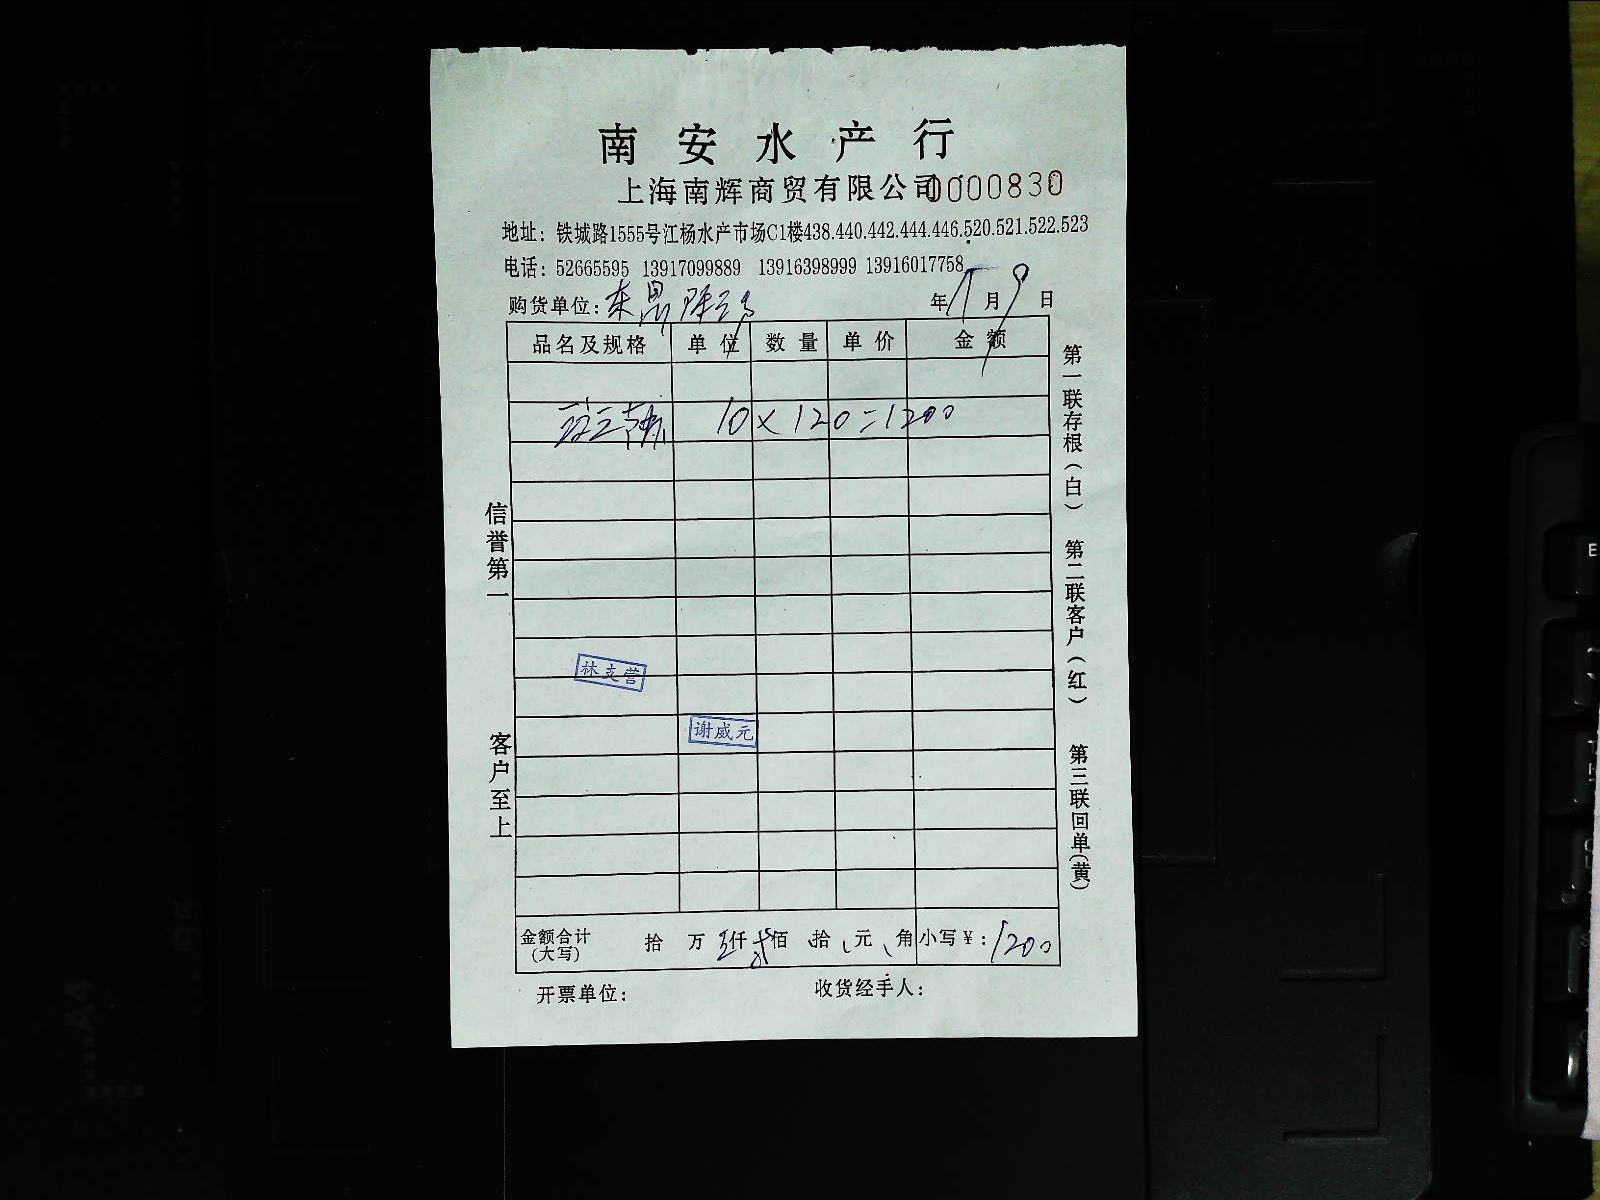 南安水产行
上海南辉商贸有限公司 0000830
地址：铁城路1555号江杨水产市场C1楼438.440.442.444.446.520.521.522.523
电话：52665595 13917099889 13916398999 13916017758
购货单位： 年 月 9 日
品名及规格 单位 数量 单价 金额
10×120=1200
信誉第一
客户至上
林支营
谢威元
第一联存根（白）
第二联客户（红）
第三联回单（黄）
金额合计（大写） 拾 万 仟 佰 拾 元 角 小写￥：1200
开票单位： 收货经手人：